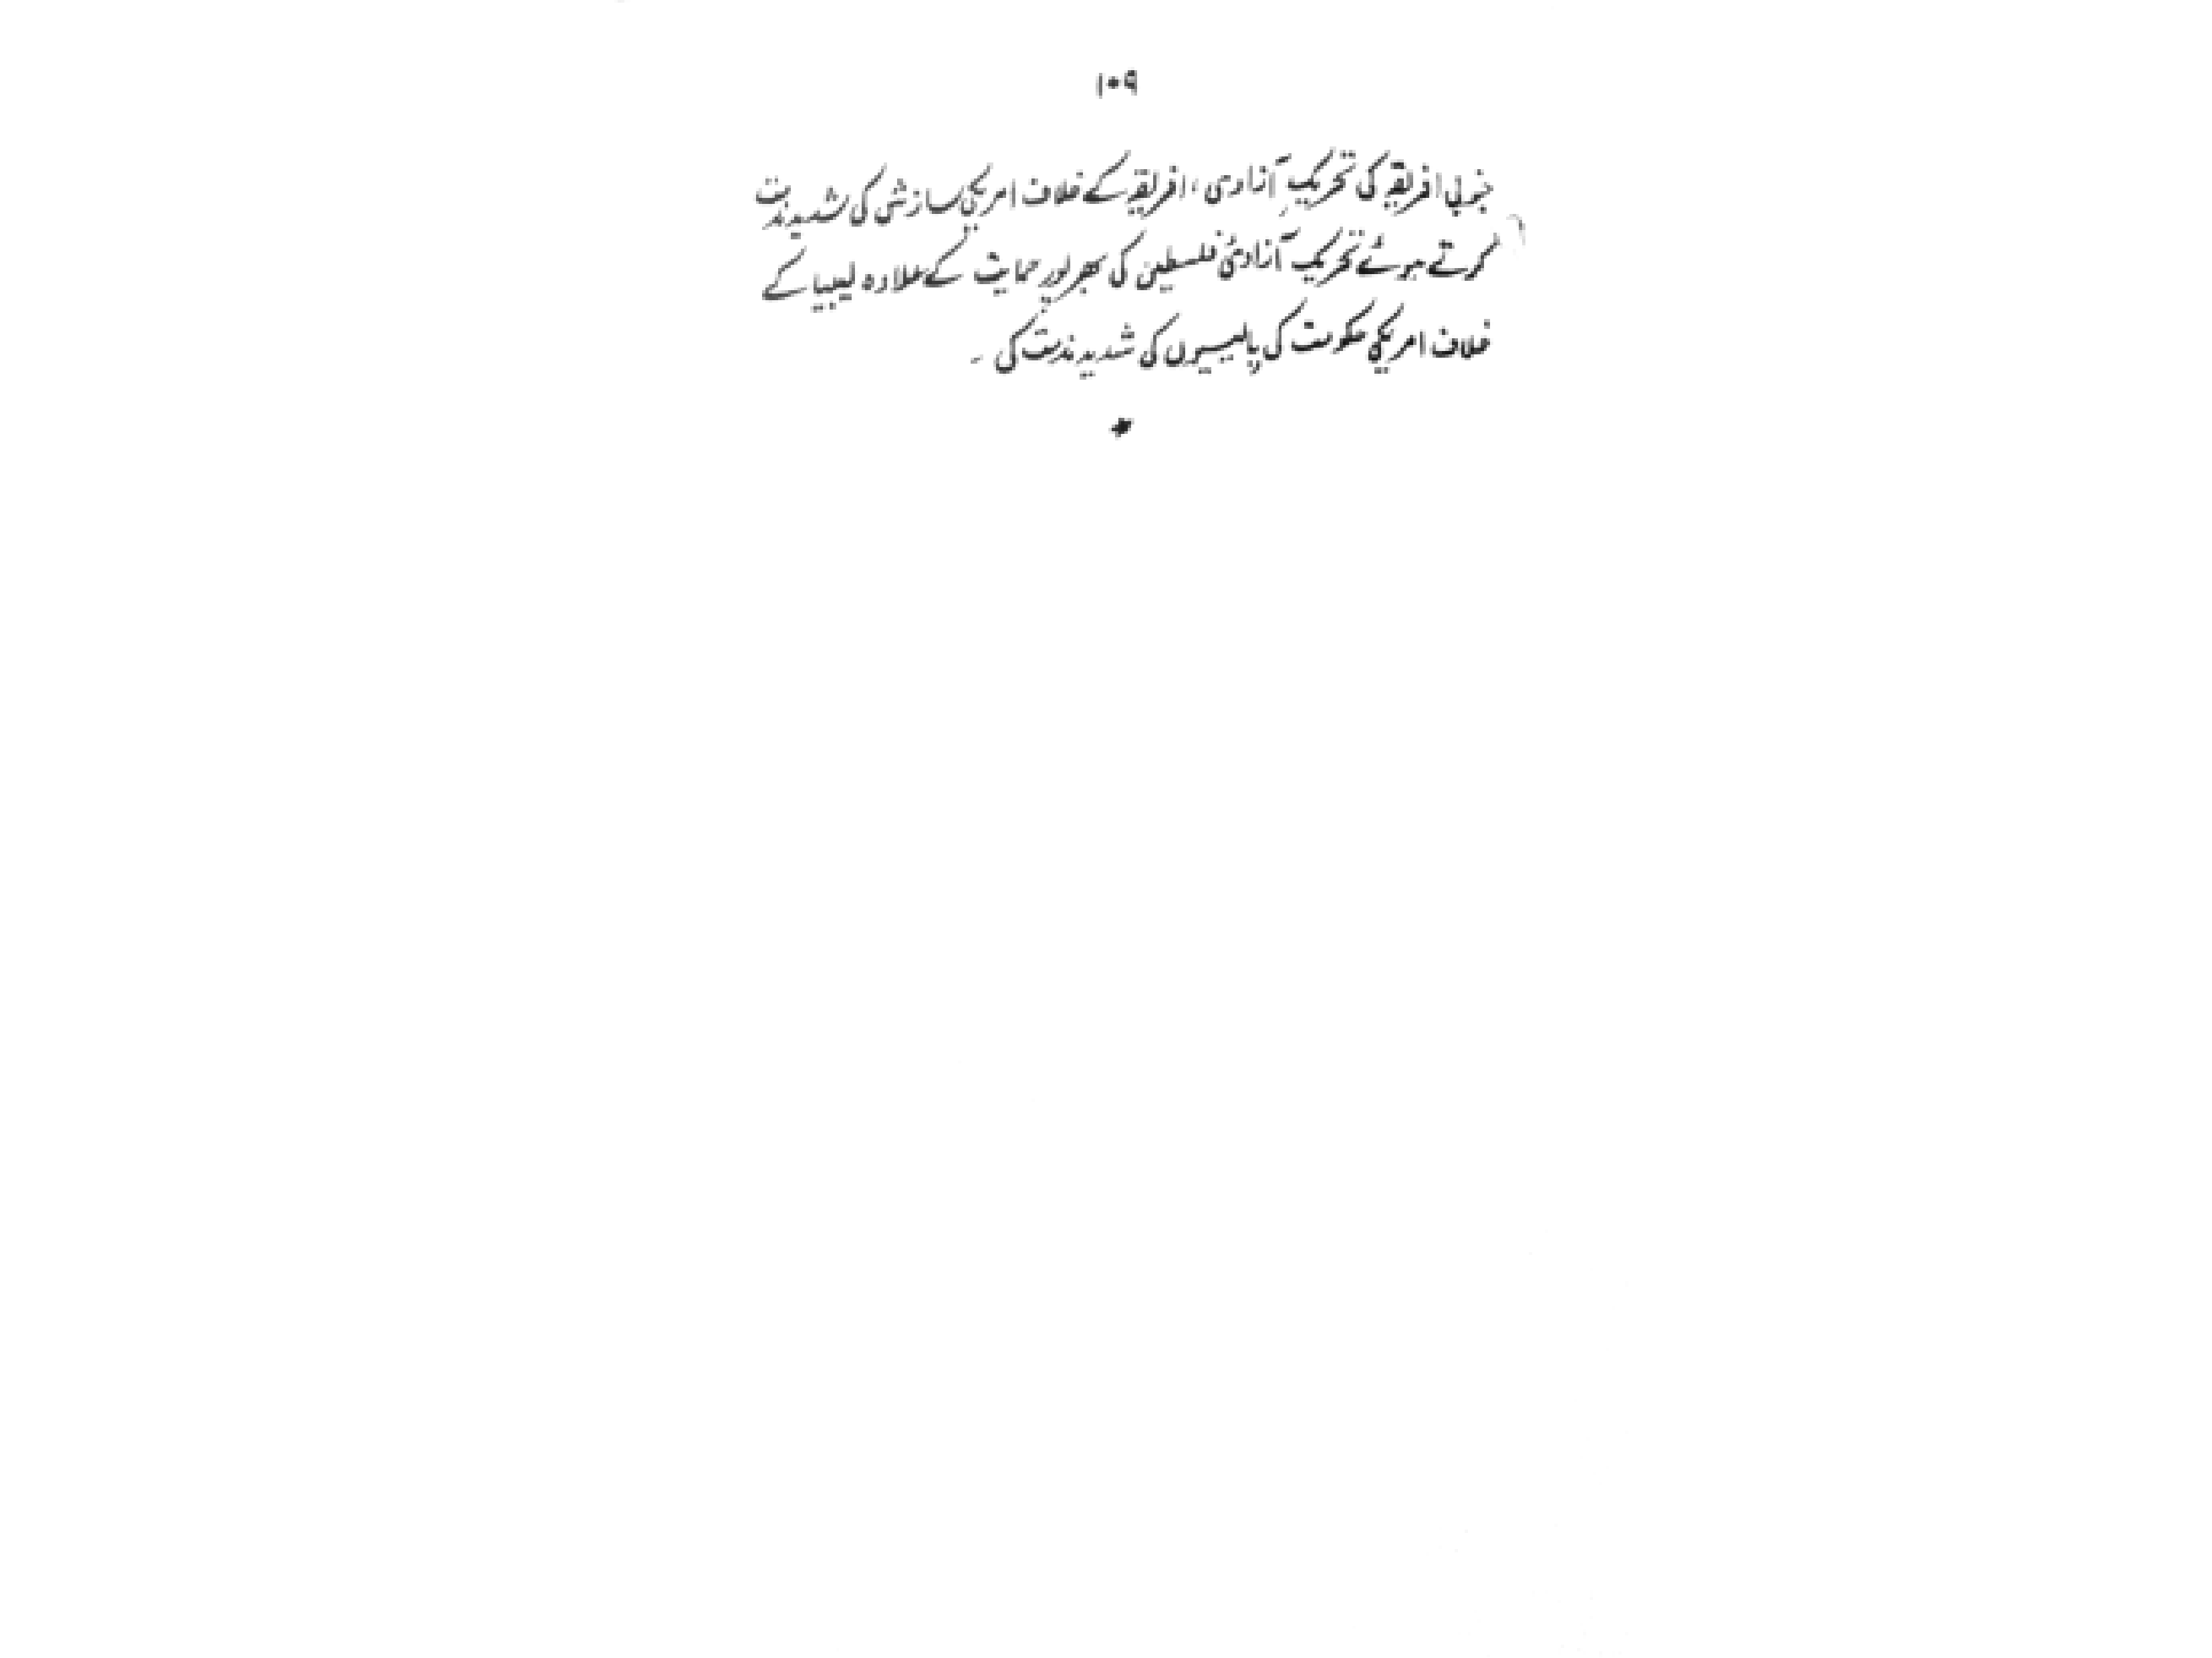 ۱۰۹
جنوبی افریقہ کی تحریکِ آزادی، افریقہ کے خلاف امریکی سازش کی شدید مذمت
کرتے ہوئے تحریکِ آزادیٔ فلسطین کی بھرپور حمایت کے علاوہ لیبیا کے
خلاف امریکی حکومت کی پالیسیوں کی شدید مذمت کی ۔
*